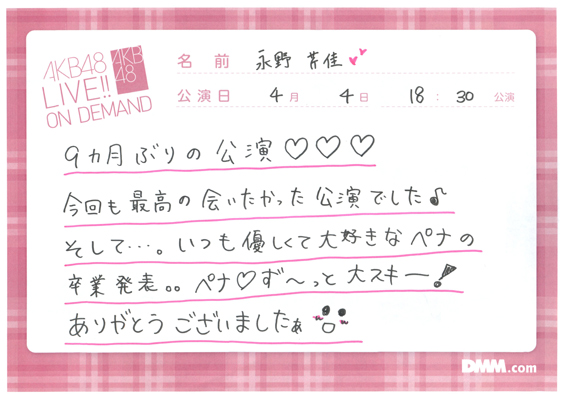 AKB48
LIVE!!
ON DEMAND
AKB
48
名前 永野 芹佳
公演日 4月 4日 18:30 公演
9ヵ月ぶりの公演♡♡♡
今回も最高の会いたかった公演でした♪
そして…。いつも優しくて大好きなペナの
卒業発表。。ペナ♡ず〜っと大スキー!
ありがとうございましたぁ
DMM.com